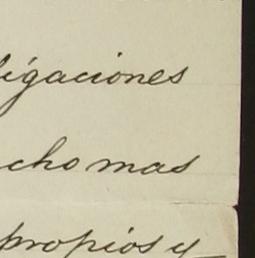 ligaciones
cho mas
propios y